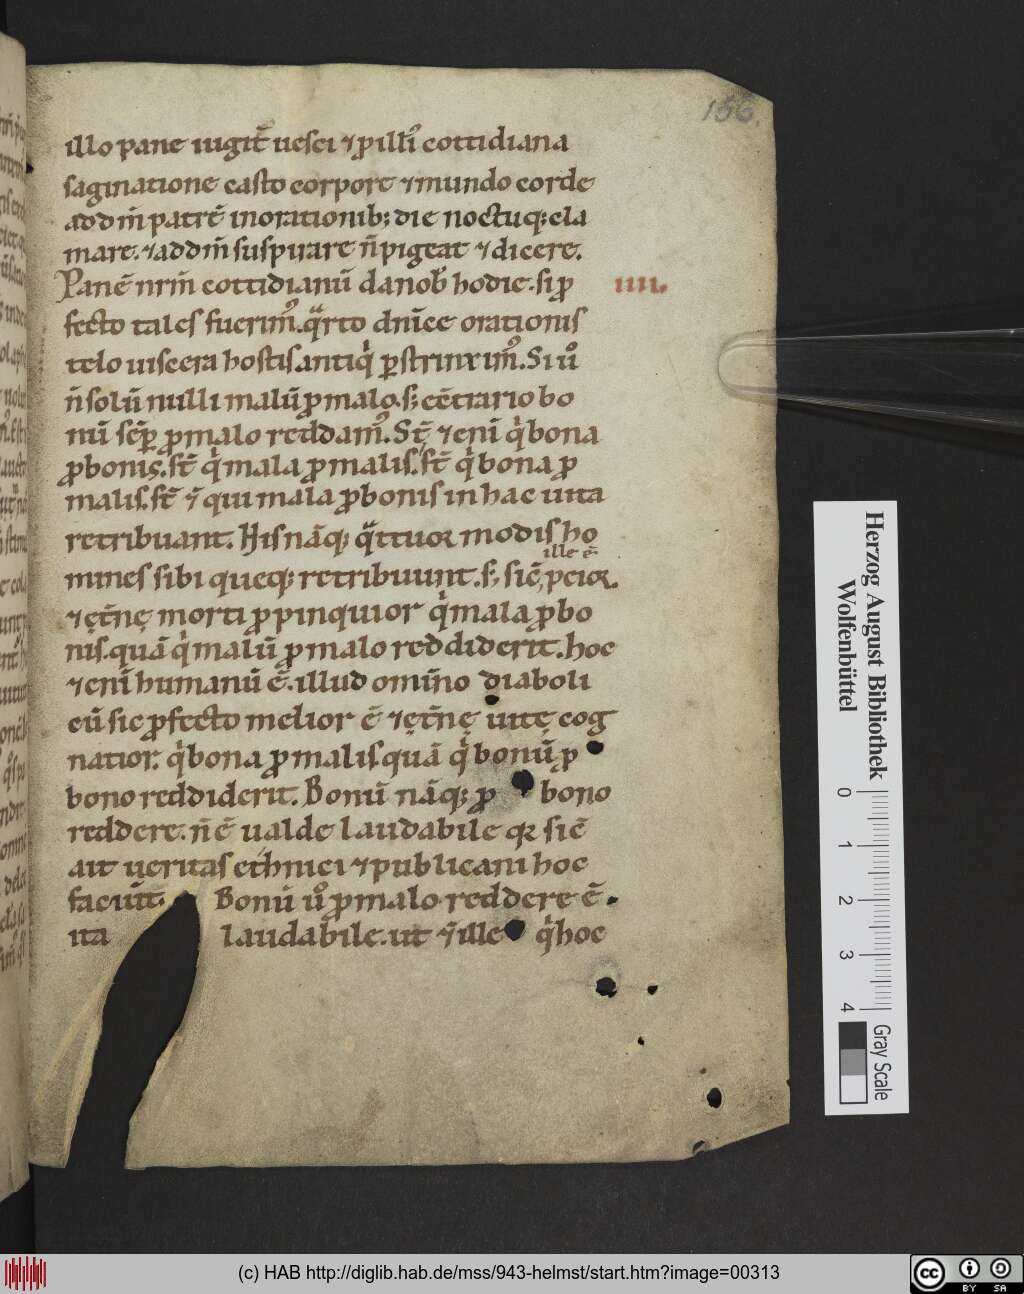 156.
illo pane iugit̄ uesci ⁊ ꝓ illi᷒ cottidiana
saginatione casto corpore ⁊ mundo corde
ad dm̄ patrē in orationib; die noctuq; cla
mare. ⁊ ad dm̄ suspirare n̄ pigeat ⁊ dicere.
Panē nrm̄ cottidianū da nob̄ hodie. si ꝓ
IIII.
fecto tales fuerim᷒. qͣrto dnīce orationis
telo uiscera hostis antiqͥ ꝑstrinxim᷒. Si uͦ
n̄ solū nulli malū ꝓ malo. s; cētrario bo
nū sēꝑ ꝓ malo reddam᷒. St̄ ⁊enī qͥ bona
ꝓ bonis. st̄ qͥ mala ꝓ malis. st̄ qͥ bona ꝓ
malis. st̄ ⁊̄ qui mala ꝓ bonis in hac uita
retribuant. His nāq; qͣttuor modis ho
ille ē
mines sibi queq; retribuunt. s; sic̄, peior.
⁊ ęt̄nę morti ꝓpinquior qͥ mala ꝓ bo
nis. quā qͥ malū ꝓ malo reddiderit. hoc
⁊enī humanū ē. illud omīno diaboli
cū sic ꝓfecto melior ē ⁊ ęt̄nę uitę cog
natior. qͥ bona ꝓ malis quā qͥ bonū ꝓ
bono reddiderit. Bonū nāq; ꝓ bono
reddere. n̄ ē ualde laudabile qꝛ sic̄
ait ueritas ethnici ⁊ publicani hoc
faciūt. Bonū uͦ ꝓ malo reddere ē
ita laudabile. ut ⁊̄ ille qͥ hoc
Herzog August Bibliothek
Wolfenbüttel
0 1 2 3 4
Gray Scale
(c) HAB http://diglib.hab.de/mss/943-helmst/start.htm?image=00313
cc BY SA